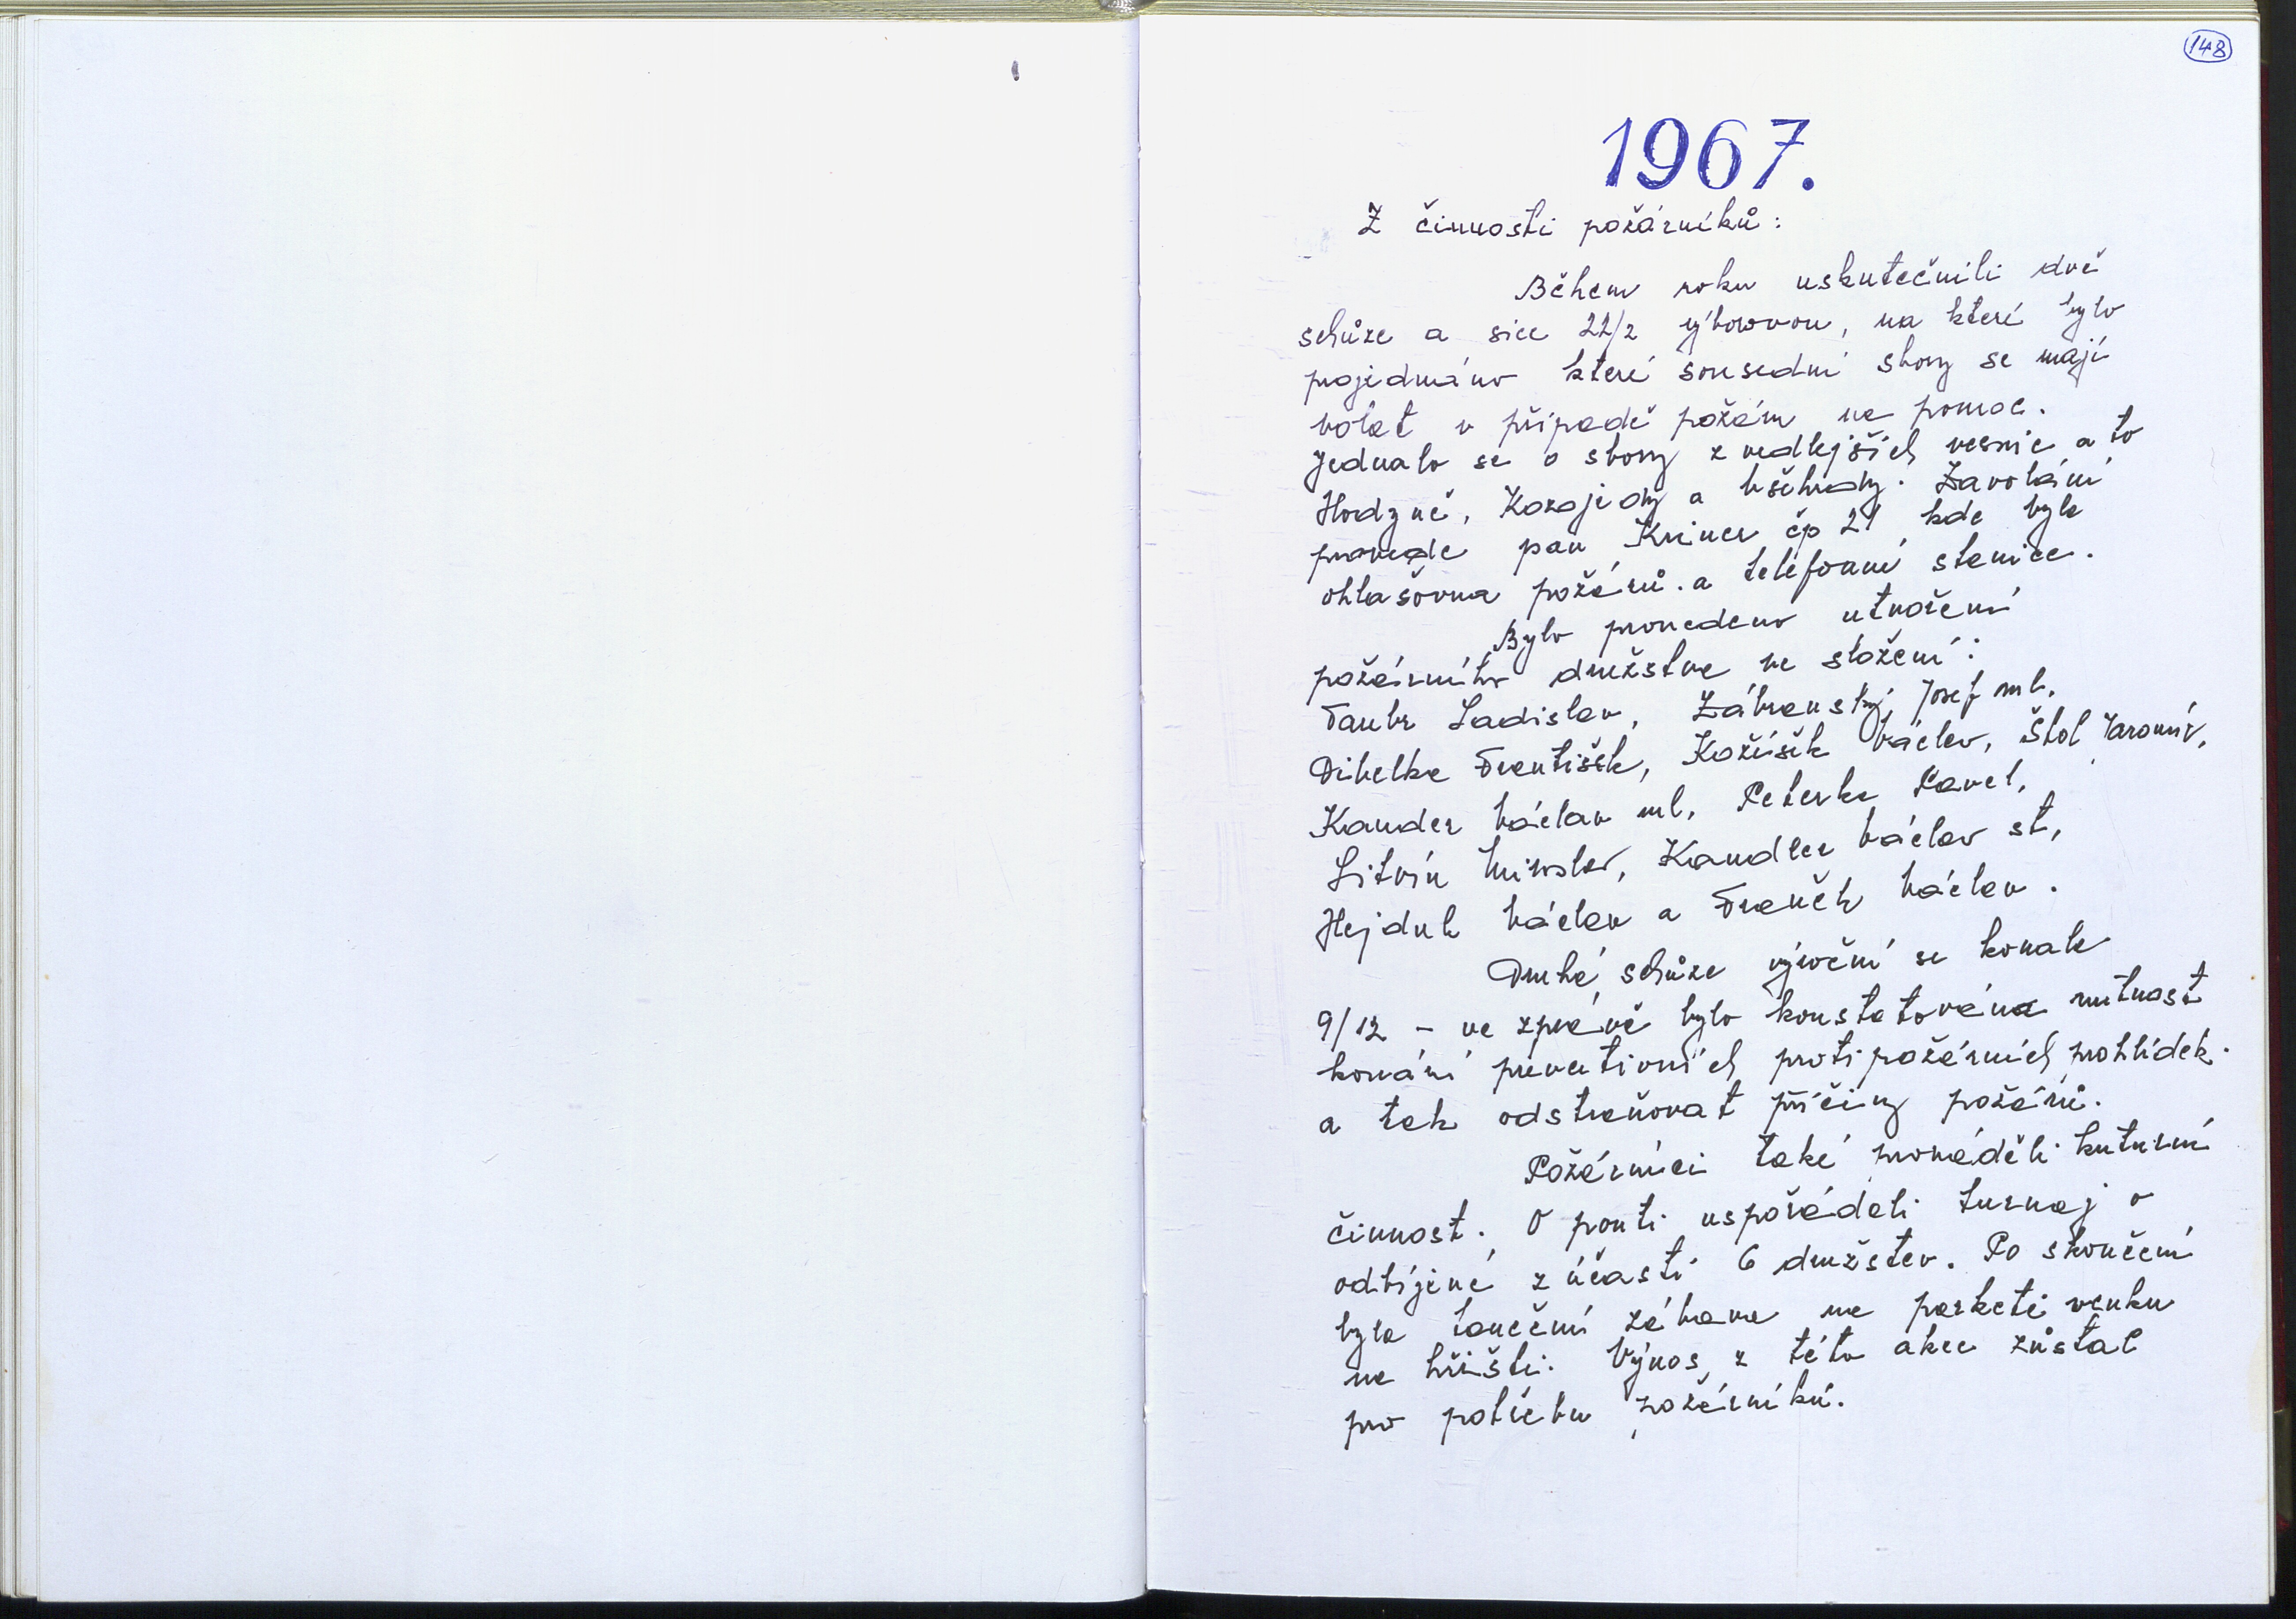 148
1967.
Z činnosti požárníků:
Během roku uskutečnili dvě
schůze a sice 22/2 výborovou, na které bylo
projednáno které sousední sbory se mají
volat v případě požáru na pomoc.
Jednalo se o sbory z vedlejších vesnic a to
Hodyně, Kozojedy a Všehrdy. Zavolání
provede pan Kriner čp 21 kde byla
ohlašovna požárů. a telefonní stanice.
Bylo provedeno utvoření
požárního družstva ve složení:
Faubr Ladislav, Zábranský Josef ml.
Dibelka František, Kožíšek Václav, Štol Jaromír,
Kander Václav ml, Peterka Pavel,
Litvín Miroslav, Kandler Václav st,
Hejduk Václav a Franěk Václav.
Druhá schůze výroční se konala
9/12 - ve zprávě bylo konstatována nutnost
konání preventivních protipožárních prohlídek.
a tak odstraňovat příčiny požárů.
Požárníci také prováděli kuturní
činnost. O pouti uspořádali turnaj o
odbíjené z účasti 6 družstev. Po skončení
byla taneční zábava na parketě venku
na hřišti. Výnos z této akce zůstal
pro potřebu požárníků.